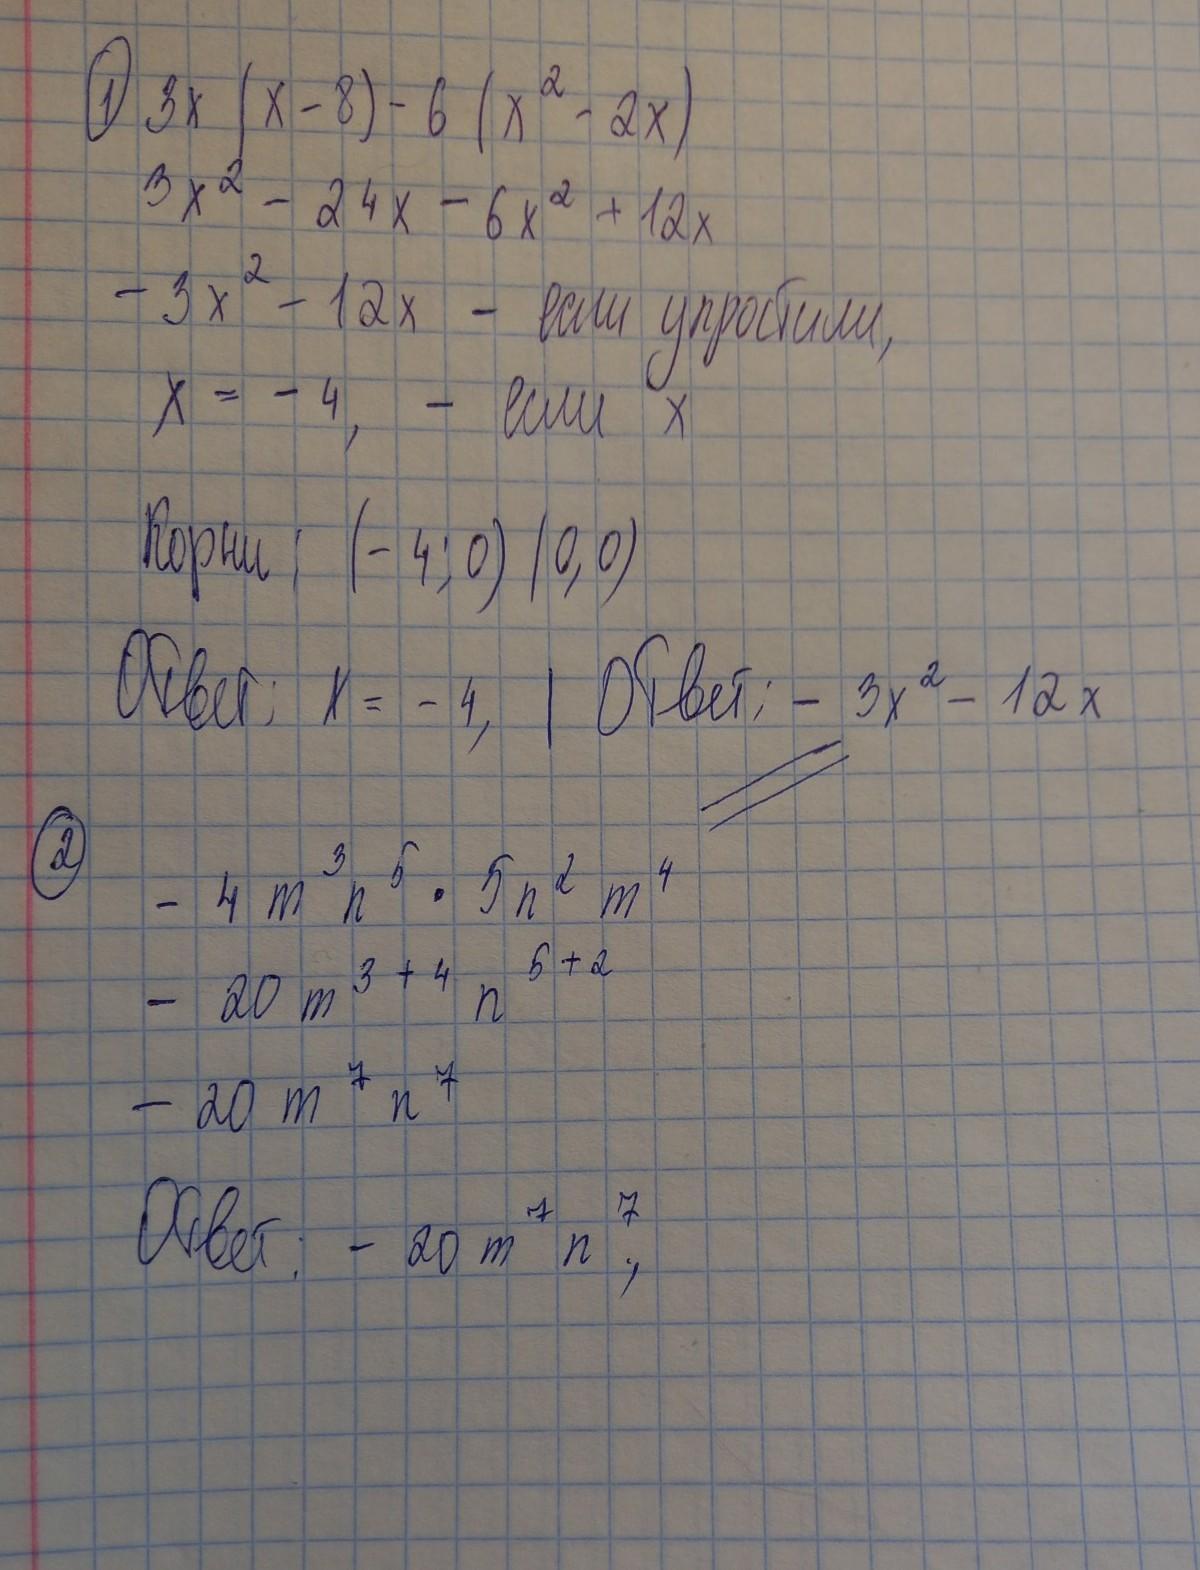 ① 3x (x - 8) - 6 (x² - 2x)
3x² - 24x - 6x² + 12x
- 3x² - 12x - если упростили,
x = - 4, - если x
Корни: (- 4; 0) (0,0)
Ответ: x = - 4, | Ответ: - 3x² - 12x
② - 4 m³n⁵ · 5n² m⁴
- 20 m³⁺⁴ n⁵⁺²
- 20 m⁷ n⁷
Ответ: - 20 m⁷ n⁷;